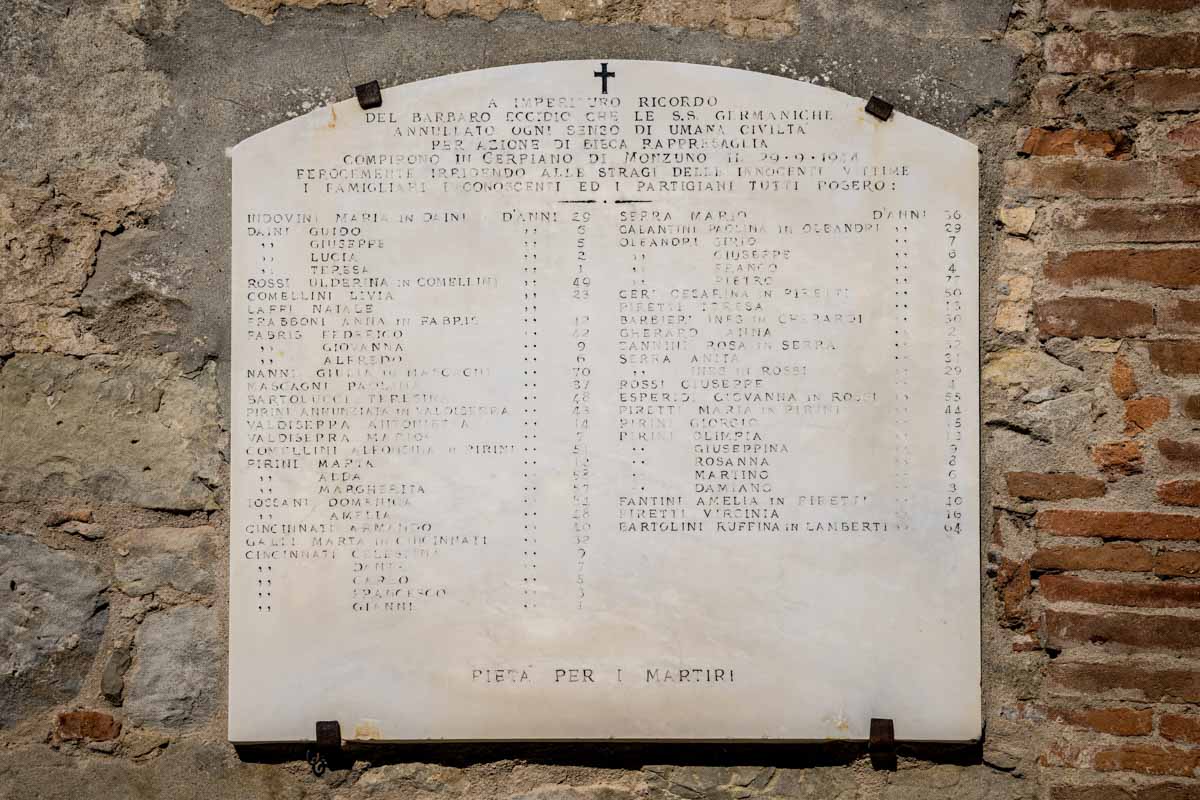 A IMPERITURO RICORDO
DEL BARBARO ECCIDIO CHE LE S.S. GERMANICHE
ANNULLATO OGNI SENSO DI UMANA CIVILTA'
PER AZIONE DI BIECA RAPPRESAGLIA
COMPIRONO IN CERPIANO DI MONZUNO IL 29-9-1944
FEROCEMENTE IRRIDENDO ALLE STRAGI DELLE INNOCENTI VITTIME
I FAMIGLIARI I CONOSCENTI ED I PARTIGIANI TUTTI POSERO:
INDOVINI MARIA IN DAINI D'ANNI 29
DAINI GUIDO ,, 6
,, GIUSEPPE ,, 5
,, LUCIA ,, 2
,, TERESA ,, 1
ROSSI ULDERINA IN COMELLINI ,, 49
COMELLINI LIVIA ,, 23
LAFFI NATALE ,,
FRABBONI ANNA IN FABRIS ,,
FABRIS FEDERICO ,, 42
,, GIOVANNA ,, 9
,, ALFREDO ,, 6
NANNI GIULIA IN MASCAGNI ,, 70
MASCAGNI PAOLINA ,, 37
BARTOLUCCI TERESINA ,, 48
PIRINI ANNUNZIATA IN VALDISERRA ,, 43
VALDISERRA ANTONIETTA ,, 14
VALDISERRA MARIO ,,
COMELLINI ALFONSINA IN PIRINI ,, 51
PIRINI MARTA ,,
,, ALDA ,,
,, MARGHERITA ,,
TOSSANI DOMENICA ,,
,, AMELIA ,,
CINCINNATI ARMANDO ,,
GALLI MARTA IN CINCINNATI ,, 32
CINCINNATI CELESTINA ,, 9
,, DANTE ,, 7
,, CARLO ,, 5
,, FRANCESCO ,, 3
,, GIANNI ,, 1
SERRA MARIO D'ANNI 36
CALANTINI PAOLINA IN OLEANDRI ,, 29
OLEANDRI SIRIO ,, 7
,, GIUSEPPE ,, 6
,, FRANCO ,, 4
,, PIETRO ,,
CERI CESARINA IN PIRETTI ,, 50
PIRETTI TERESA ,,
BARBIERI INES IN GHERARDI ,, 30
GHERARDI ANNA ,, 2
ZANNINI ROSA IN SERRA ,,
SERRA ANITA ,,
,, INES IN ROSSI ,, 29
ROSSI GIUSEPPE ,, 4
ESPERIDI GIOVANNA IN ROSSI ,, 55
PIRETTI MARIA IN PIRINI ,, 44
PIRINI GIORGIO ,, 15
PIRINI OLIMPIA ,,
,, GIUSEPPINA ,, 9
,, ROSANNA ,, 8
,, MARTINO ,, 6
,, DAMIANO ,, 3
FANTINI AMELIA IN PIRETTI ,, 40
PIRETTI VIRGINIA ,, 16
BARTOLINI RUFFINA IN LAMBERTI ,, 64
PIETÀ PER I MARTIRI